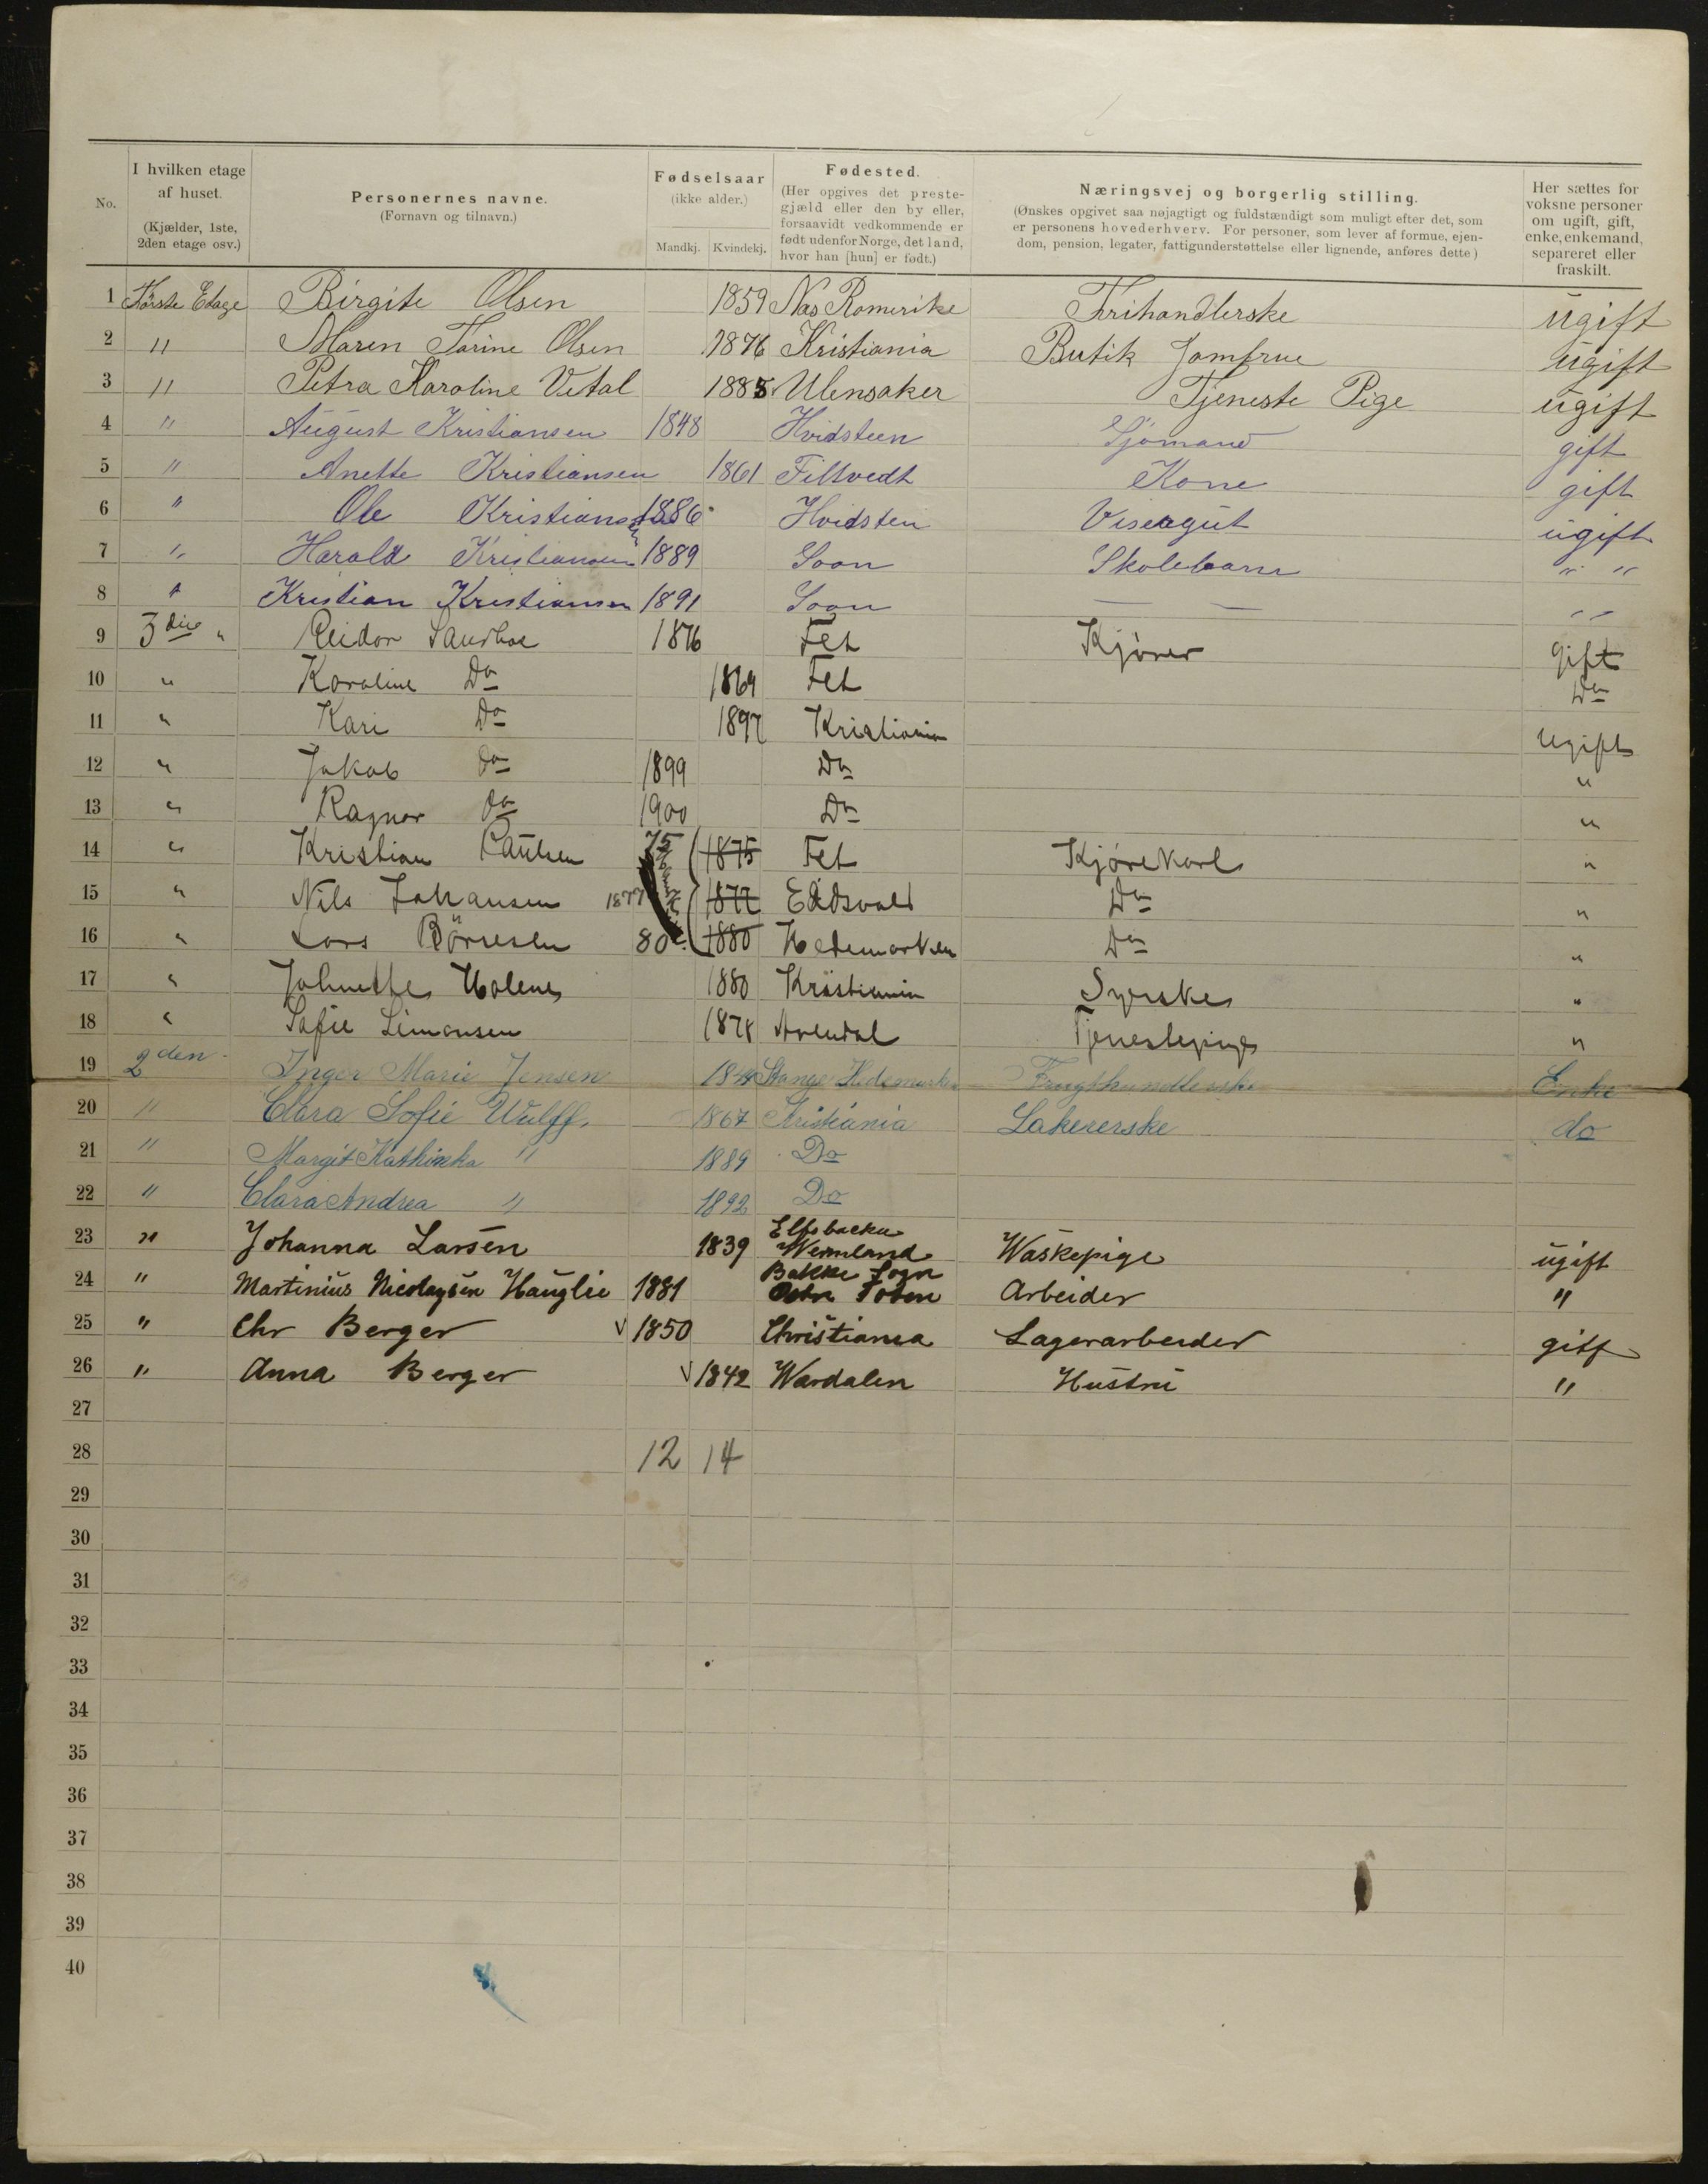 No. I hvilken etage af huset. (Kjælder, 1ste, 2den etage osv.) Personernes navne. (Fornavn og tilnavn.) Fødselsaar (ikke alder.) Mandkj. Kvindekj. Fødested. (Her opgives det prestegjæld eller den by eller, forsaavidt vedkommende er født udenfor Norge, det land, hvor han [hun] er født.) Næringsvej og borgerlig stilling. (Ønskes opgivet saa nøjagtigt og fuldstændigt som muligt efter det, som er personens hovederhverv. For personer, som lever af formue, ejendom, pension, legater, fattigunderstøttelse eller lignende, anføres dette) Her sættes for voksne personer om ugift, gift, enke, enkemand, separeret eller fraskilt.
1 Förste Etage Birgite Olsen 1859 Nas Romerike ugift
2 " Maren Tarine Olsen 1876 Kristiania Butik Jomfrue ugift
3 " Petra Karoline Vetal 1885 Ulensaker Tjeneste Pige ugift
4 " August Kristiansen 1848 Hvidsteen Sjömand gift
5 " Anette Kristiansen 1861 Filtvedt Kone gift
6 " Ole Kristiansen 1886 Hvidsten Visergut ugift
7 " Harald Kristiansen 1889 Soon Skolebarn " "
8 " Kristian Kristiansen 1891 Soon — — " "
9 3die " Reidar 1876 Fet Kjører gift
10 " Karoline Do 1869 Fet Do
11 " Kari Do 1897 Kristiania ugift
12 " Jakob Do 1899 Do "
13 " Ragnar Do 1900 Do "
14 " Kristian Paulsen 75 1875 Fet Kjørekarl "
15 " Nils Johansen 1877 1877 Eidsvold Do "
16 " Lars Börresen 80 1880 Hedemarken Do "
17 " Johnette Holene 1880 Kristiania Syerske "
18 " Sofie Simonsen 1878 Arendal Tjenestepige "
19 2den Inger Marie Jensen Stange Hedemarken Frugthandlerske Enke
20 " Clara Sofie Wulff. 1867 Kristiania Lakererske do
21 " Margit Kathinka " 1889 Do
22 " Clara Andrea " 1892 Do
23 " Johanna Larsen 1839 Elfsbacka Wermland Waskepige ugift
24 " Martinius Nicolaysen Hauglie 1881 Bakke Sogn Østre Toten Arbeider "
25 " Chr Berger √ 1850 Christiania Lagerarbeider gift
26 " Anna Berger √ 1842 Wardalen Hustru "
27
28 12 14
29
30
31
32
33
34
35
36
37
38
39
40